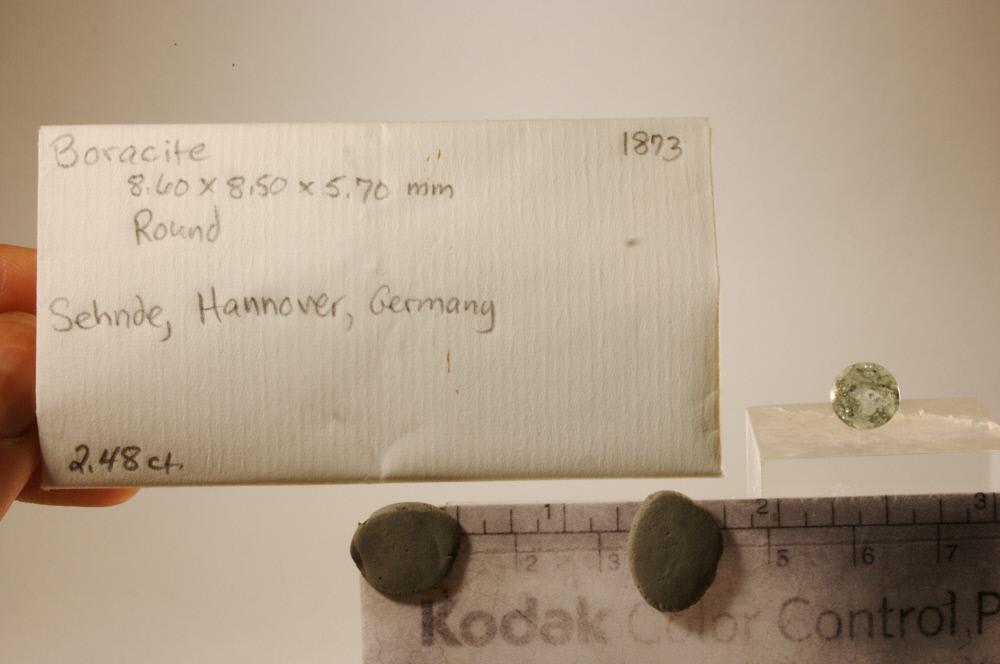 Boracite 1873
8.60 x 8.50 x 5.70 mm
Round
Sehnde, Hannover, Germany
2.48 ct.
1 2 3
2 3 5 6 7
Kodak Color Control P